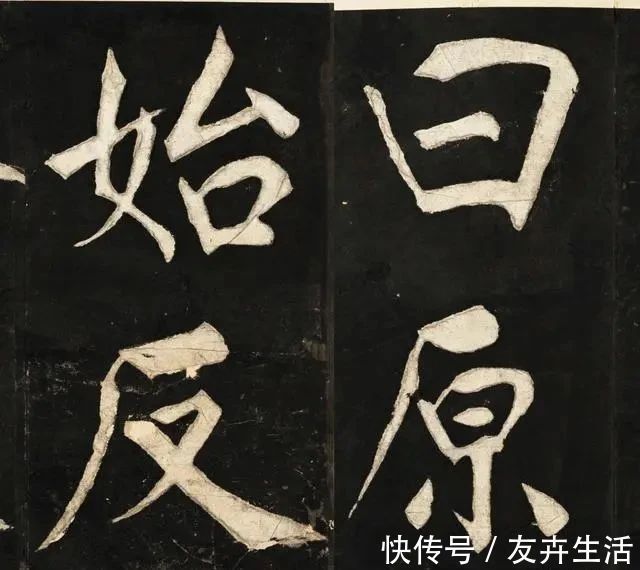 曰原
始反
快传号/友卉生活